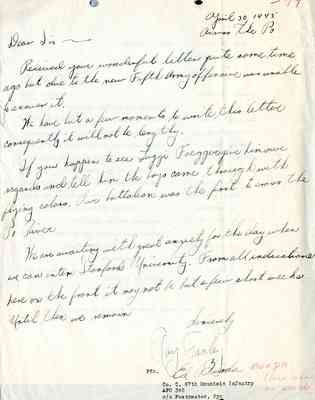 April 30, 1945
Across the Po
Dear Sir —
Received your wonderful letter quite some time
ago but due to the new Fifth Army offensive was unable
to answer it.
We have but a few moments to write this letter
consequently it will not be lengthy.
If you happen to see give him our
regards and tell him the boys came through with
flying colors. Our battalion was the first to cross the
Po River
We are awaiting with great anxiety for the day when
we can enter Stanford University. From all indications
here on the front it may not be but a few short weeks
Until then we remain
Sincerely
Ray
PFC. Ed
Co. C, 87th Mountain Infantry
APO 345
c/o Postmaster, NYC